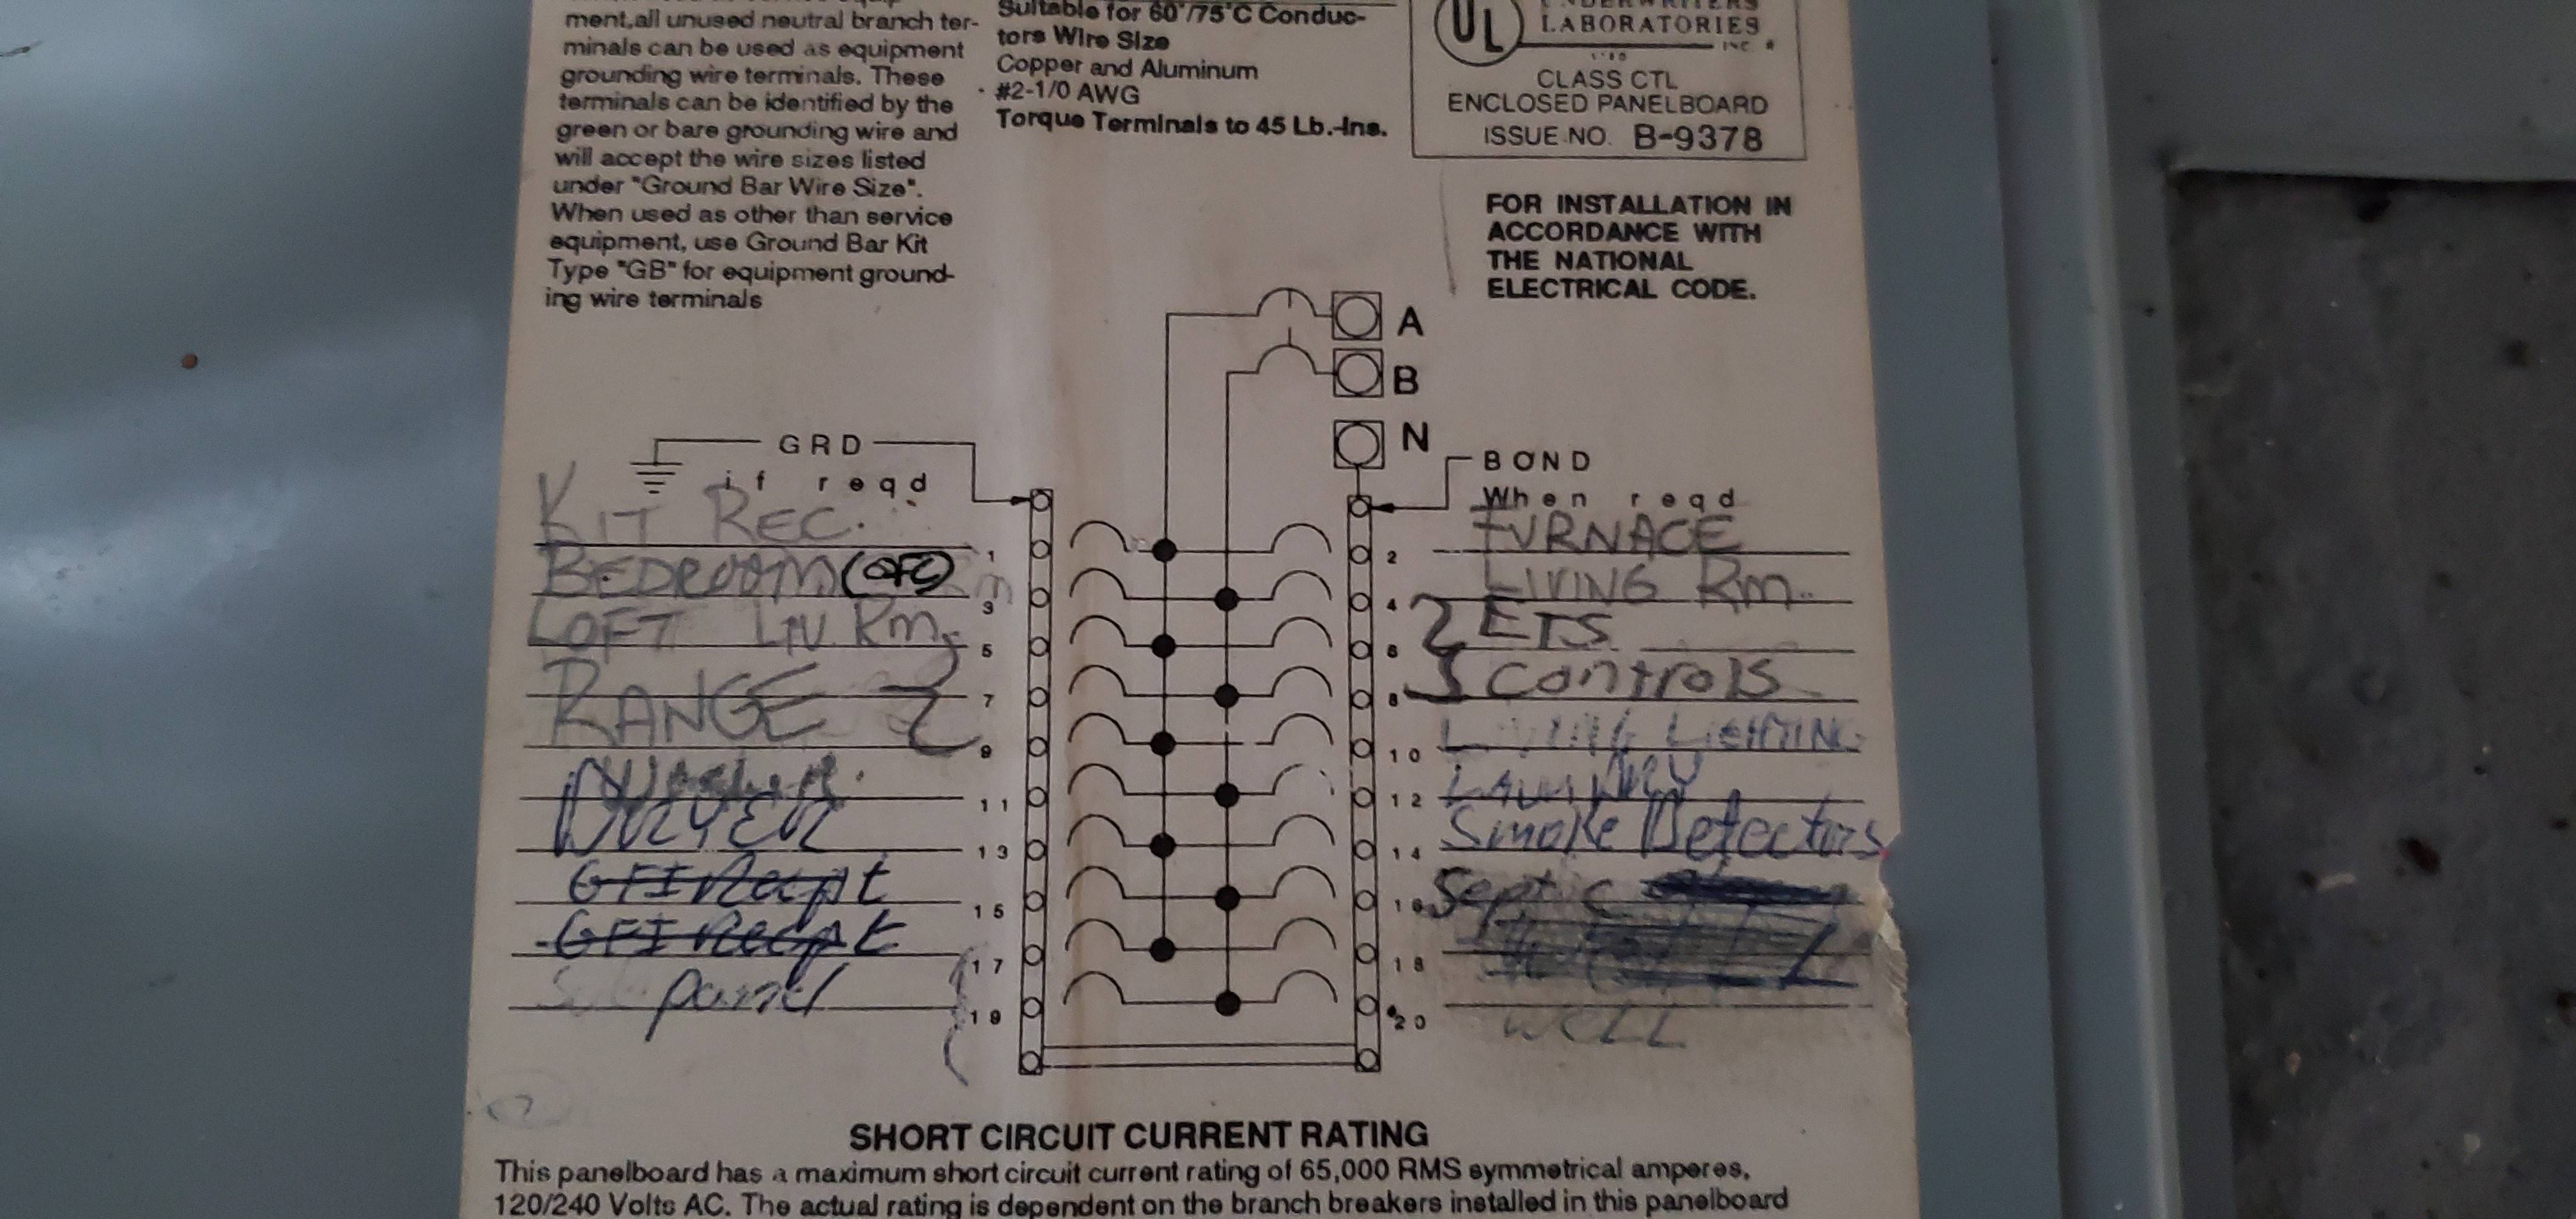 ment,all unused neutral branch ter-
minals can be used as equipment
grounding wire terminals. These
terminals can be identified by the
green or bare grounding wire and
will accept the wire sizes listed
under "Ground Bar Wire Size".
When used as other than service
equipment, use Ground Bar Kit
Type "GB" for equipment ground-
ing wire terminals
Suitable for 60°/75°C Conduc-
tors Wire Size
Copper and Aluminum
#2-1/0 AWG
Torque Terminals to 45 Lb.-Ins.
UL
UNDERWRITERS
LABORATORIES
INC. ®
CLASS CTL
ENCLOSED PANELBOARD
ISSUE NO. B-9378
FOR INSTALLATION IN
ACCORDANCE WITH
THE NATIONAL
ELECTRICAL CODE.
A
B
N
GRD
if reqd
BOND
When reqd
KIT REC. 1
BEDROOM (OFC) 3
LOFT LIV Rm 5
RANGE 7
9
11
DRYER 13
GFI Recept 15
GFI Recept 17
Sub panel 19
2 FURNACE
4 LIVING Rm.
6 ETS
8 Controls
10 LIVING LIGHTING
12 LAUNDRY
14 Smoke Detectors
16 Septic
18
20
WELL
SHORT CIRCUIT CURRENT RATING
This panelboard has a maximum short circuit current rating of 65,000 RMS symmetrical amperes,
120/240 Volts AC. The actual rating is dependent on the branch breakers installed in this panelboard